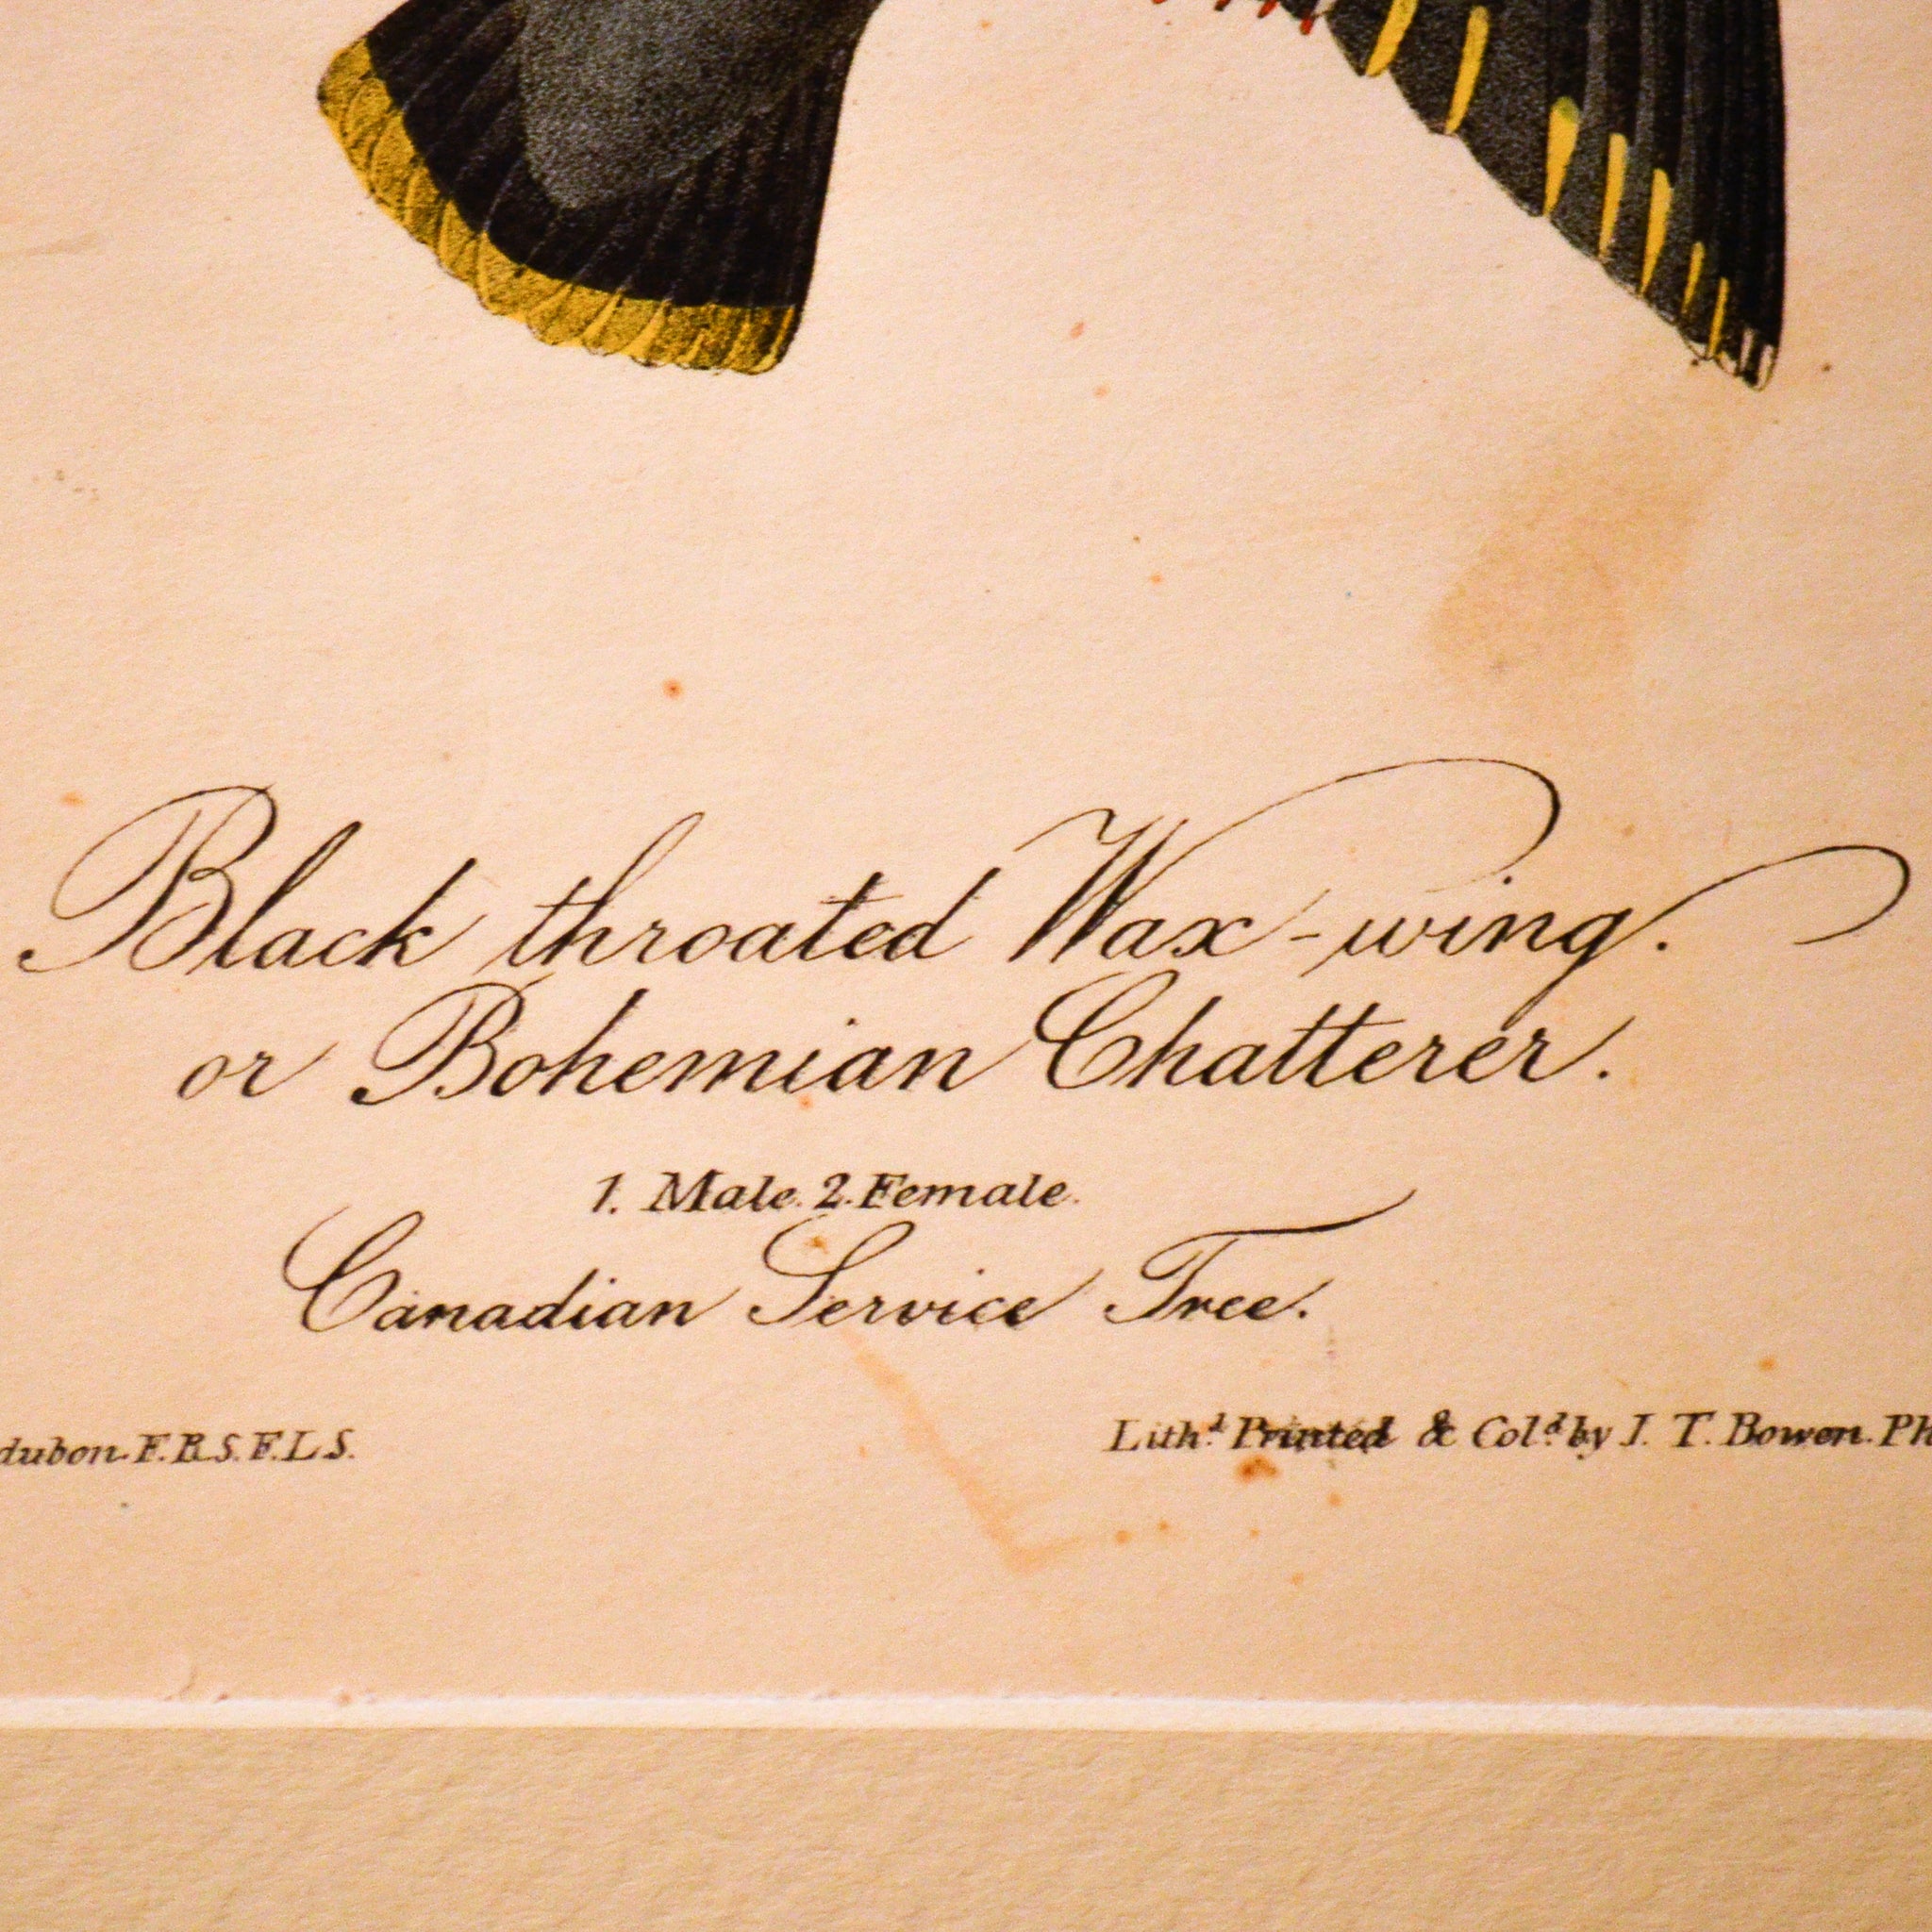 Black throated Wax-wing.
or Bohemian Chatterer.
1. Male. 2. Female.
Canadian Service Tree.
dubon. F.R.S.F.L.S.
Lith.d Printed & Col.d by J. T. Bowen. Ph